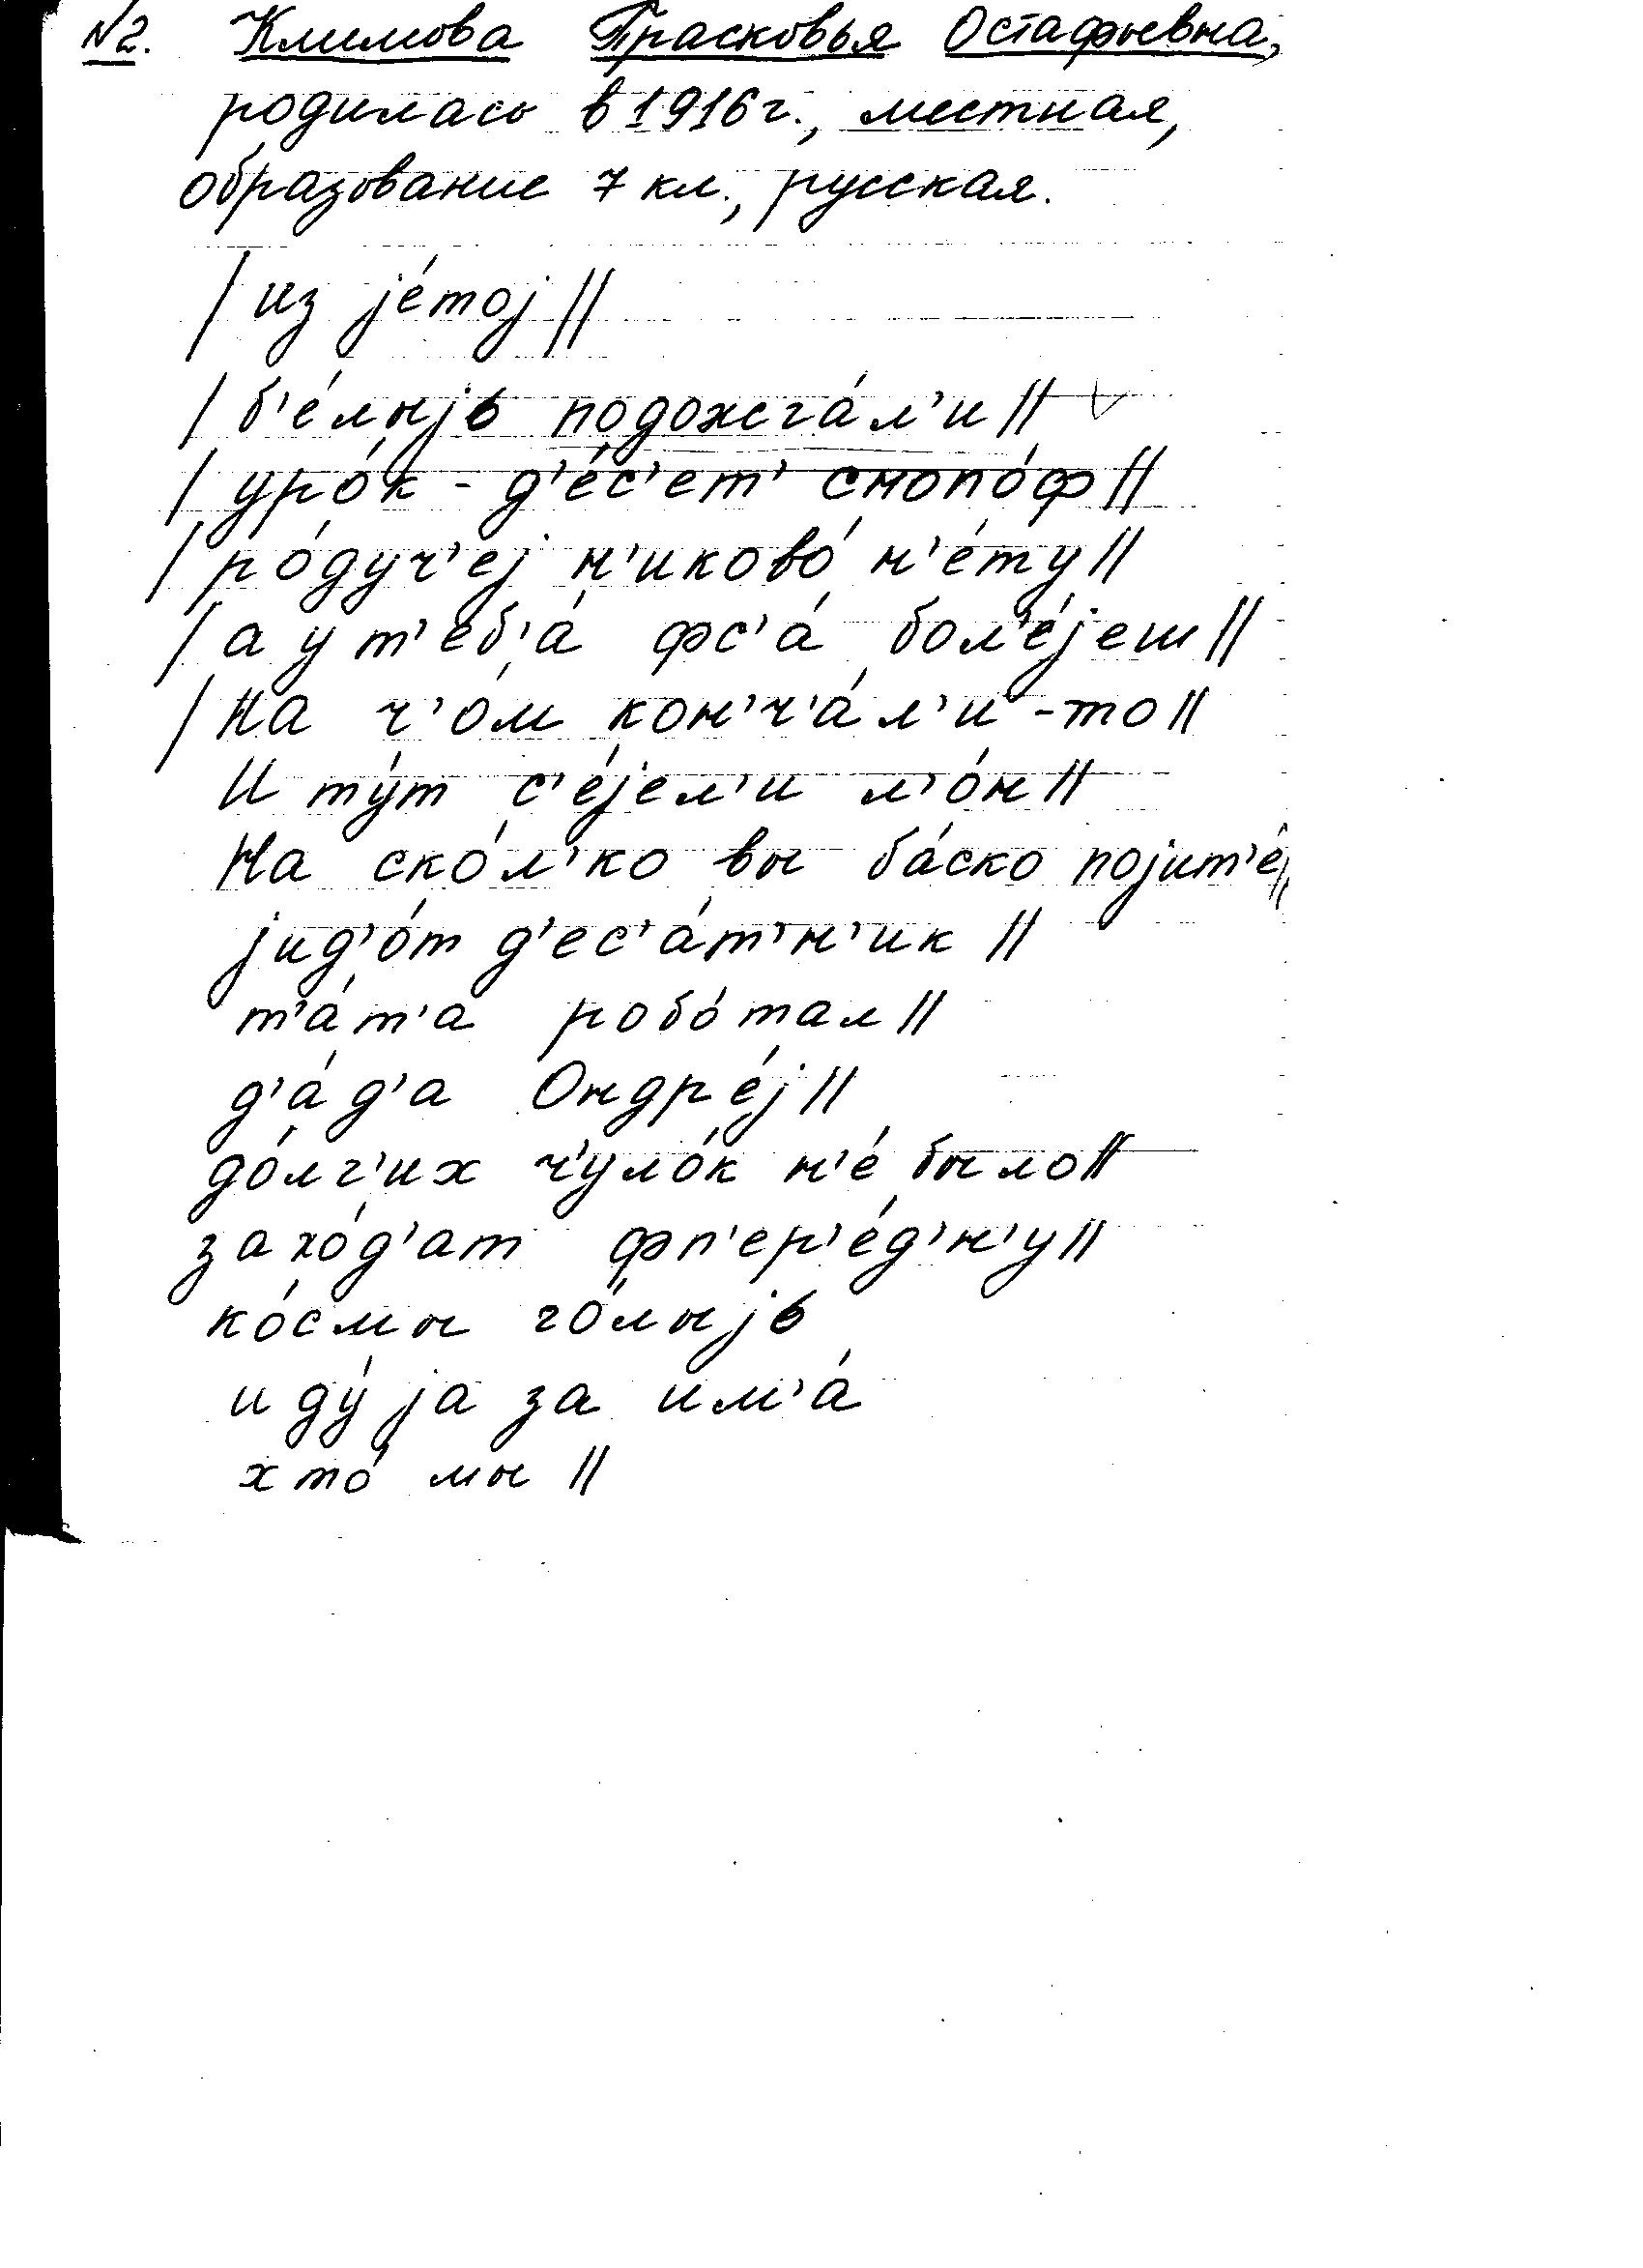 №2. Климова Прасковья Остафьевна,
родилась в 1916 г., местная,
образование 7 кл., русская.
/ из jе́тоj //
/ б'е́лыjь подожга́л'и // ✓
/ уро́к - д'е́с'ет' снопо́ф //
/ ро́дуч'еj н'иково́ н'е́ту //
/ а у т'еб'а́ фс'а́ бол'е́jеш //
/ На ч'о́м кон'ч'а́л'и -то //
И ту́т с'е́jел'и л'о́н //
На ско́л'ко вы ба́ско поjит'е́ //
jид'о́т д'ес'а́т'н'ик //
т'а́т'а робо́тал //
д'а́д'а Ондре́j //
до́лг'их ч'уло́к н'е́ было //
захо́д'ат фп'ер'е́д'н'у //
ко́смы го́лыjь
иду́ jа за им'а́
хто́ мы //